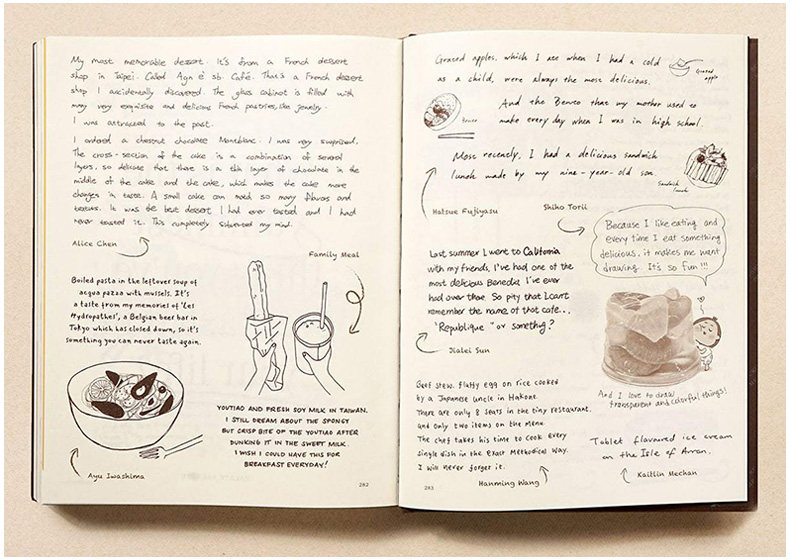 My most memorable dessert. It's from a French dessert
shop in Taipei. Called Agn è sb. Café. That's a French dessert
shop I accidentally discovered. The glass cabinet is filled with
many very exquisite and delicious French pastries, like jewelry.
I was attracted to the past.
I ordered a chestnut chocolate Montblanc. I was very surprised.
The cross-section of the cake is a combination of several
layers, so delicate that there is a thin layer of chocolate in the
middle of the cake and the cake, which makes the cake more
changes in taste. A small cake can most so many flavors and
texture. It was the best dessert I had ever tasted and I had
never tasted it. This completely subverted my mind.
Alice Chen
Family Meal
Boiled pasta in the leftover soup of
acqua pazza with mussels. It's
a taste from my memories of 'Les
Hydropathes', a Belgian beer bar in
Tokyo which has closed down, so it's
something you can never taste again.
Ayu Iwashima
YOUTIAO AND FRESH SOY MILK IN TAIWAN.
I STILL DREAM ABOUT THE SPONGY
BUT CRISP BITE OF THE YOUTIAO AFTER
DUNKING IT IN THE SWEET MILK.
I WISH I COULD HAVE THIS FOR
BREAKFAST EVERYDAY!
282
Grated apples, which I ate when I had a cold
as a child, were always the most delicious.
Grated
apple
And the Bento that my mother used to
make every day when I was in high school.
Bento
Most recenely, I had a delicious sandwich
lunch made by my nine-year-old son.
Sandwich
lunch
Hatsue Fujiyasu
Shiho Torii
Because I like eating and
every time I eat something
delicious, it makes me want
drawing. It's so fun!!!
Last summer I went to California
with my friends, I've had one of the
most delicious Benedict I've ever
had over there. So pity that I can't
remember the name of that cafe...
"Republique" or somethig?
Jialei Sun
And I love to draw
transparent and colorful things!
Beef stew, flatty egg on rice cooked
by a Japanese uncle in Hakone.
There are only 8 seats in the tiny restaurant.
and only two items on the menu.
The chef takes his time to cook every
single dish in the exact Methodical Way.
I will never forget it.
Hanming Wang
Tablet flavoured ice cream
on the Isle of Arran.
Kaitlin Mechan
283